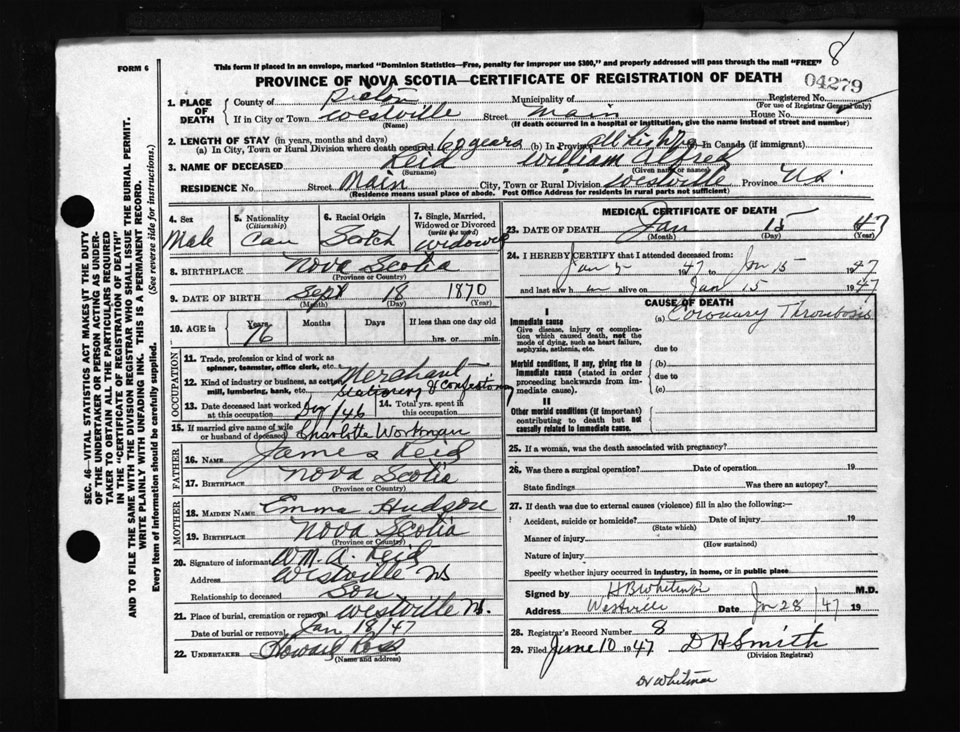 8
FORM 6
This form if placed in an envelope, marked "Dominion Statistics—Free, penalty for improper use $300," and properly addressed will pass through the mail "FREE"
PROVINCE OF NOVA SCOTIA—CERTIFICATE OF REGISTRATION OF DEATH
04279
1. PLACE OF DEATH
County of Pictou Municipality of Registered No.
(For use of Registrar General only)
If in City or Town Westville Street Main House No.
(Name) (If death occurred in a hospital or institution, give the name instead of street and number)
2. LENGTH OF STAY (in years, months and days)
(a) In City, Town or Rural Division where death occurred 60 years (b) In Province all his life In Canada (if immigrant)
3. NAME OF DECEASED Reid William Alfred
(Surname) (Given name or names)
RESIDENCE No. Street Main City, Town or Rural Division Westville Province N.S.
(Residence means usual place of abode. Post Office Address for residents in rural parts not sufficient)
4. Sex
Male
5. Nationality
(Citizenship)
Can
6. Racial Origin
Scotch
7. Single, Married, Widowed or Divorced
(write the word)
Widowed
8. BIRTHPLACE Nova Scotia
(Province or Country)
9. DATE OF BIRTH Sept 18 1870
(Month) (Day) (Year)
10. AGE in Years Months Days If less than one day old
76 hrs. or min.
OCCUPATION
11. Trade, profession or kind of work as spinner, teamster, office clerk, etc. Merchant
12. Kind of industry or business, as cotton mill, lumbering, bank, etc. Stationery & Confectionery
13. Date deceased last worked at this occupation Dec/46
14. Total yrs. spent in this occupation
15. If married give name of wife or husband of deceased Charlotte Workman
FATHER
16. NAME James Reid
17. BIRTHPLACE Nova Scotia
(Province or Country)
MOTHER
18. MAIDEN NAME Emma Hudson
19. BIRTHPLACE Nova Scotia
(Province or Country)
20. Signature of informant Wm. A. Reid
Address Westville NS
Relationship to deceased Son
21. Place of burial, cremation or removal Westville N.S.
Date of burial or removal Jan 18/47
22. UNDERTAKER Howard Ross
(Name and address)
MEDICAL CERTIFICATE OF DEATH
23. DATE OF DEATH Jan 15 47
(Month) (Day) (Year)
24. I HEREBY CERTIFY that I attended deceased from:
Jan 1947 to Jan 15 1947
and last saw him alive on Jan 15 1947
CAUSE OF DEATH
I
Immediate cause (a) Coronary Thrombosis
Give disease, injury or complication which caused death, not the mode of dying, such as heart failure, asphyxia, asthenia, etc. due to
Morbid conditions, if any, giving rise to immediate cause (stated in order proceeding backwards from immediate cause).
(b)
due to
(c)
II
Other morbid conditions (if important) contributing to death but not causally related to immediate cause.
25. If a woman, was the death associated with pregnancy?
26. Was there a surgical operation? Date of operation 19
State findings Was there an autopsy?
27. If death was due to external causes (violence) fill in also the following:
Accident, suicide or homicide? Date of injury 19
(State which)
Manner of injury
(How sustained)
Nature of injury
Specify whether injury occurred in industry, in home, or in public place
Signed by H B Whitman M.D.
Address Westville Date Jan 28/47 19
28. Registrar's Record Number 8
29. Filed June 10 1947 D H Smith
(Division Registrar)
Dr Whitman
SEC. 46—VITAL STATISTICS ACT MAKES IT THE DUTY
OF THE UNDERTAKER OR PERSON ACTING AS UNDERTAKER
TO OBTAIN ALL THE PARTICULARS REQUIRED
IN THE "CERTIFICATE OF REGISTRATION OF DEATH"
AND TO FILE THE SAME WITH THE DIVISION REGISTRAR WHO SHALL ISSUE THE BURIAL PERMIT.
WRITE PLAINLY WITH UNFADING INK. THIS IS A PERMANENT RECORD.
Every item of information should be carefully supplied. (See reverse side for instructions.)